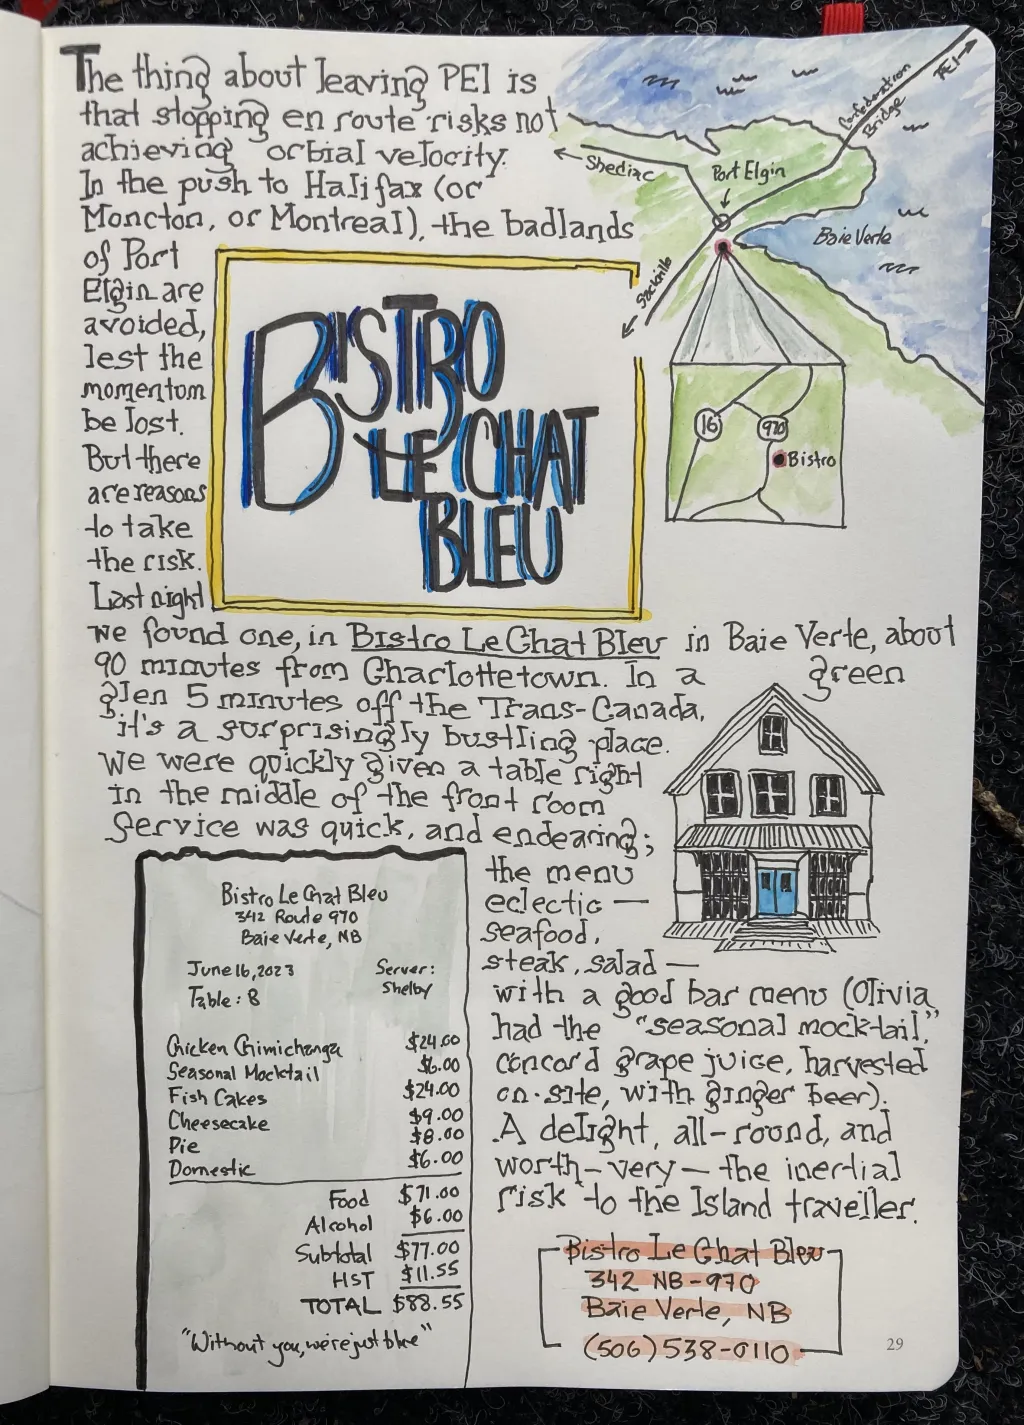 The thing about leaving PEI is
that stopping en route risks not
achieving orbial velocity.
In the push to Halifax (or
Moncton, or Montreal), the badlands
of Port
Elgin are
avoided,
lest the
momentom
be lost.
But there
are reasons
to take
the risk.
Last night
BISTRO
LE CHAT
BLEU
Confederation
Bridge
PEI
Shediac
Port Elgin
Baie Verte
Sackville
16
970
Bistro
we found one, in Bistro Le Chat Bleu in Baie Verte, about
90 minutes from Charlottetown. In a green
glen 5 minutes off the Trans-Canada,
it's a surprisingly bustling place.
We were quickly given a table right
in the middle of the front room
Service was quick, and endearing;
the menu
eclectic —
seafood,
steak, salad —
with a good bar menu (Olivia
had the "seasonal mocktail",
concord grape juice, harvested
on-site, with ginger beer).
A delight, all-round, and
worth—very—the inertial
risk to the Island traveller.
Bistro Le Chat Bleu
342 Route 970
Baie Verte, NB
June 16, 2023 Server:
Table: 8 Shelby
Chicken Chimichanga $24.00
Seasonal Mocktail $6.00
Fish Cakes $24.00
Cheesecake $9.00
Pie $8.00
Domestic $6.00
Food $71.00
Alcohol $6.00
Subtotal $77.00
HST $11.55
TOTAL $88.55
"Without you, we're just blue"
Bistro Le Chat Bleu
342 NB-970
Baie Verte, NB
(506) 538-0110
29